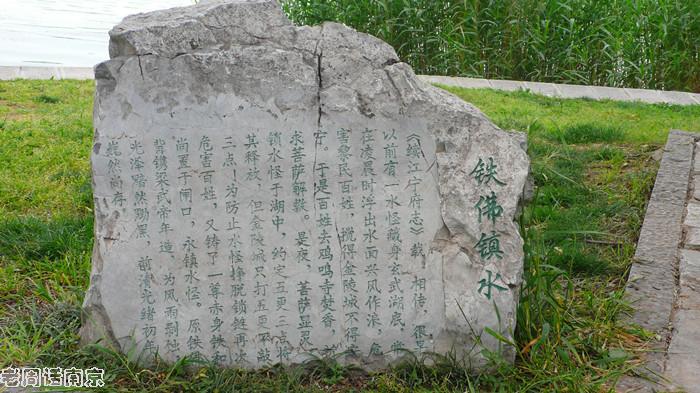 铁佛镇水
《续江宁府志》载，相传，很早
以前有一水怪藏身玄武湖底，常
在凌晨时浮出水面兴风作浪，危
害黎民百姓，搅得金陵城不得安
宁。于是百姓去鸡鸣寺焚香，
求菩萨解救。是夜，菩萨显灵，
锁水怪于湖中，约定五更三点将
其释放，但金陵城只打五更不敲
三点！为防止水怪挣脱锁链再次
危害百姓，又铸了一尊赤身铁和
尚置于闸口，永镇水怪。原铁
背镌梁武帝年造 为风雨剥蚀
光泽黯然黝黑 前清光绪初年
岿然尚存
老周话南京